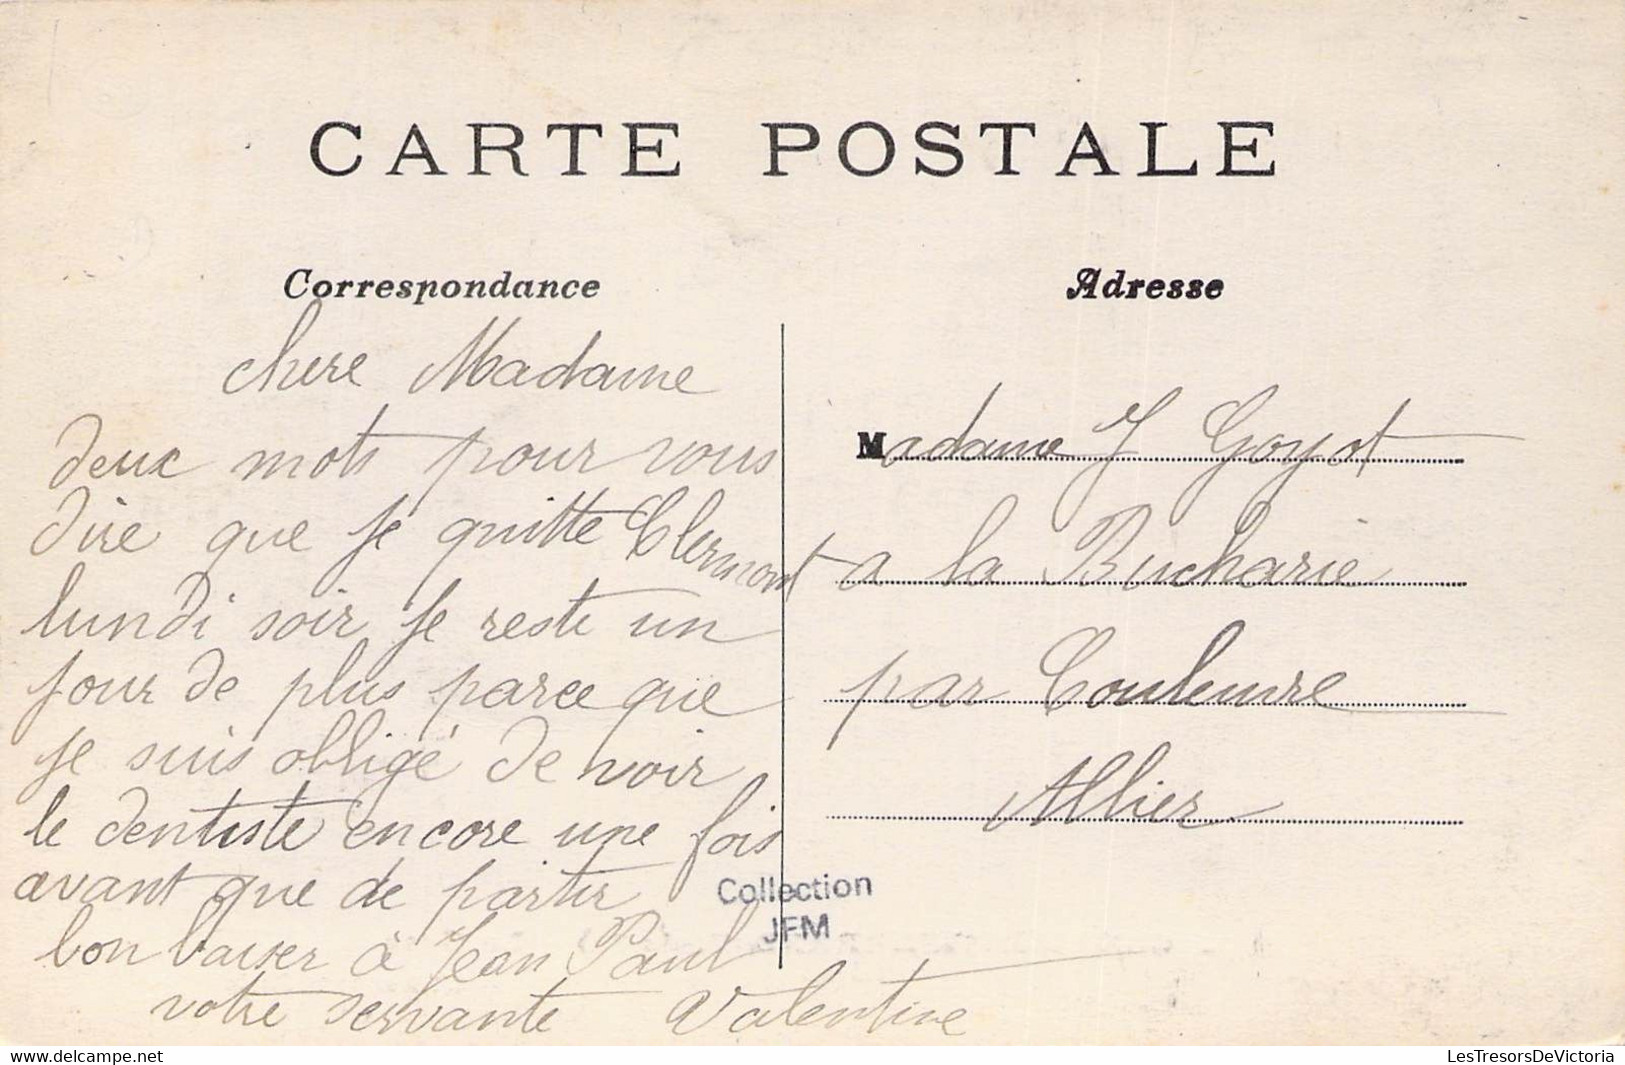 CARTE POSTALE
Correspondance
chere Madame
deux mots pour vous
dire que je quitte Clermont
lundi soir je reste un
jour de plus parce que
je suis obligé de voir
le dentiste encore une fois
avant que de partir
bon baiser à Jean Paul
votre servante Valentine
Adresse
Madame J Goyot
a la Bucharie
par Couleuvre
Allier
Collection
JFM
delcampe.net
LesTresorsDeVictoria